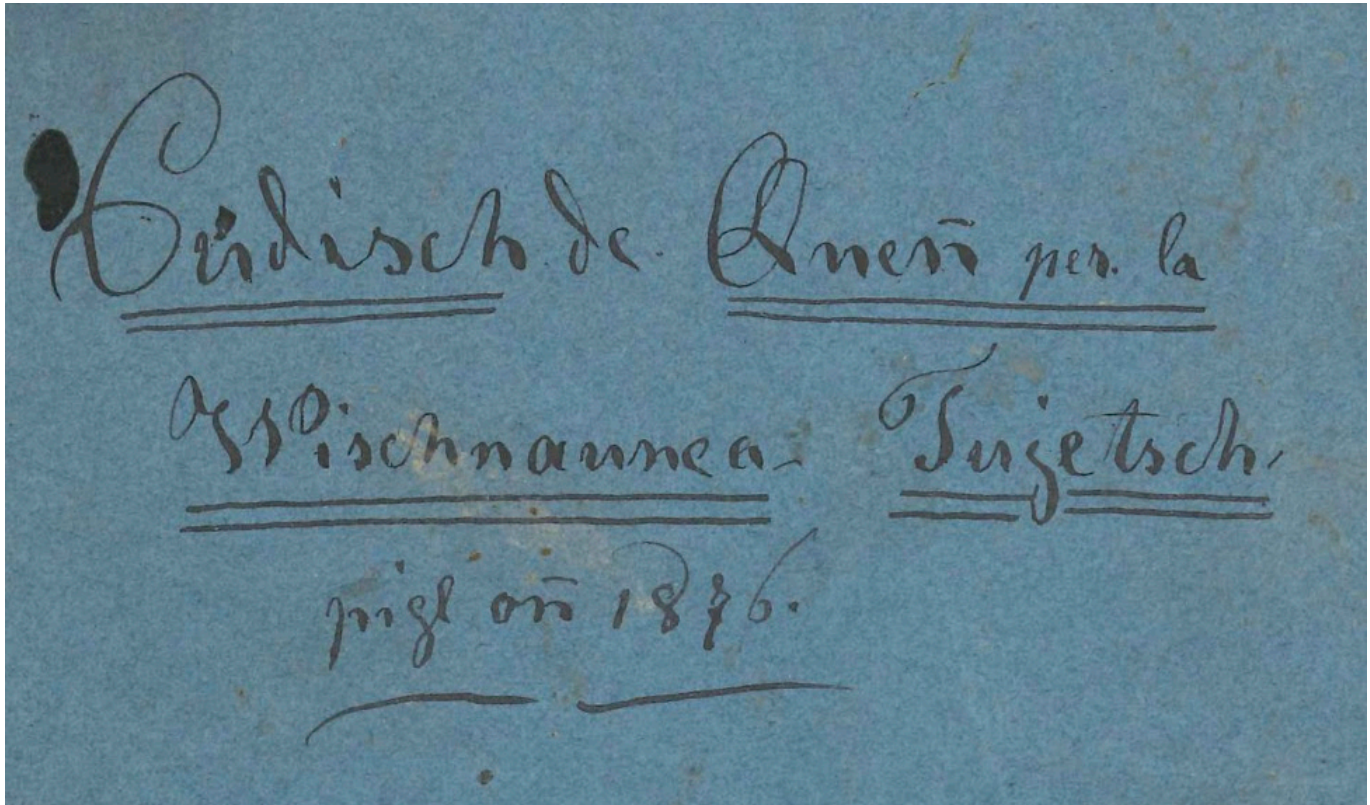 Cudisch de Queñ per. la
Vischnaunca Tujetsch.
pigl oñ 1876.